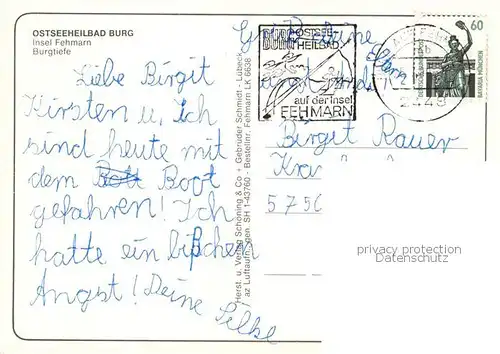 OSTSEEHEILBAD BURG
Insel Fehmarn
Burgtiefe
Liebe Birgit
Kirsten u. Ich
sind heute mit
dem Boot
gefahren! Ich
hatte ein bißchen
Angst! Deine Silke
Herst. u. Verlag Schöning & Co + Gebrüder Schmidt - Lübeck
az Luftaufn. gen. SH 1-43760 - Bestellnr. Fehmarn LK 6638
BURG OSTSEE-
HEILBAD
auf der Insel
FEHMARN
2448
60
BAYARIA MÜNCHEN
Birgit Rauer
Krar
5750
privacy protection
Datenschutz